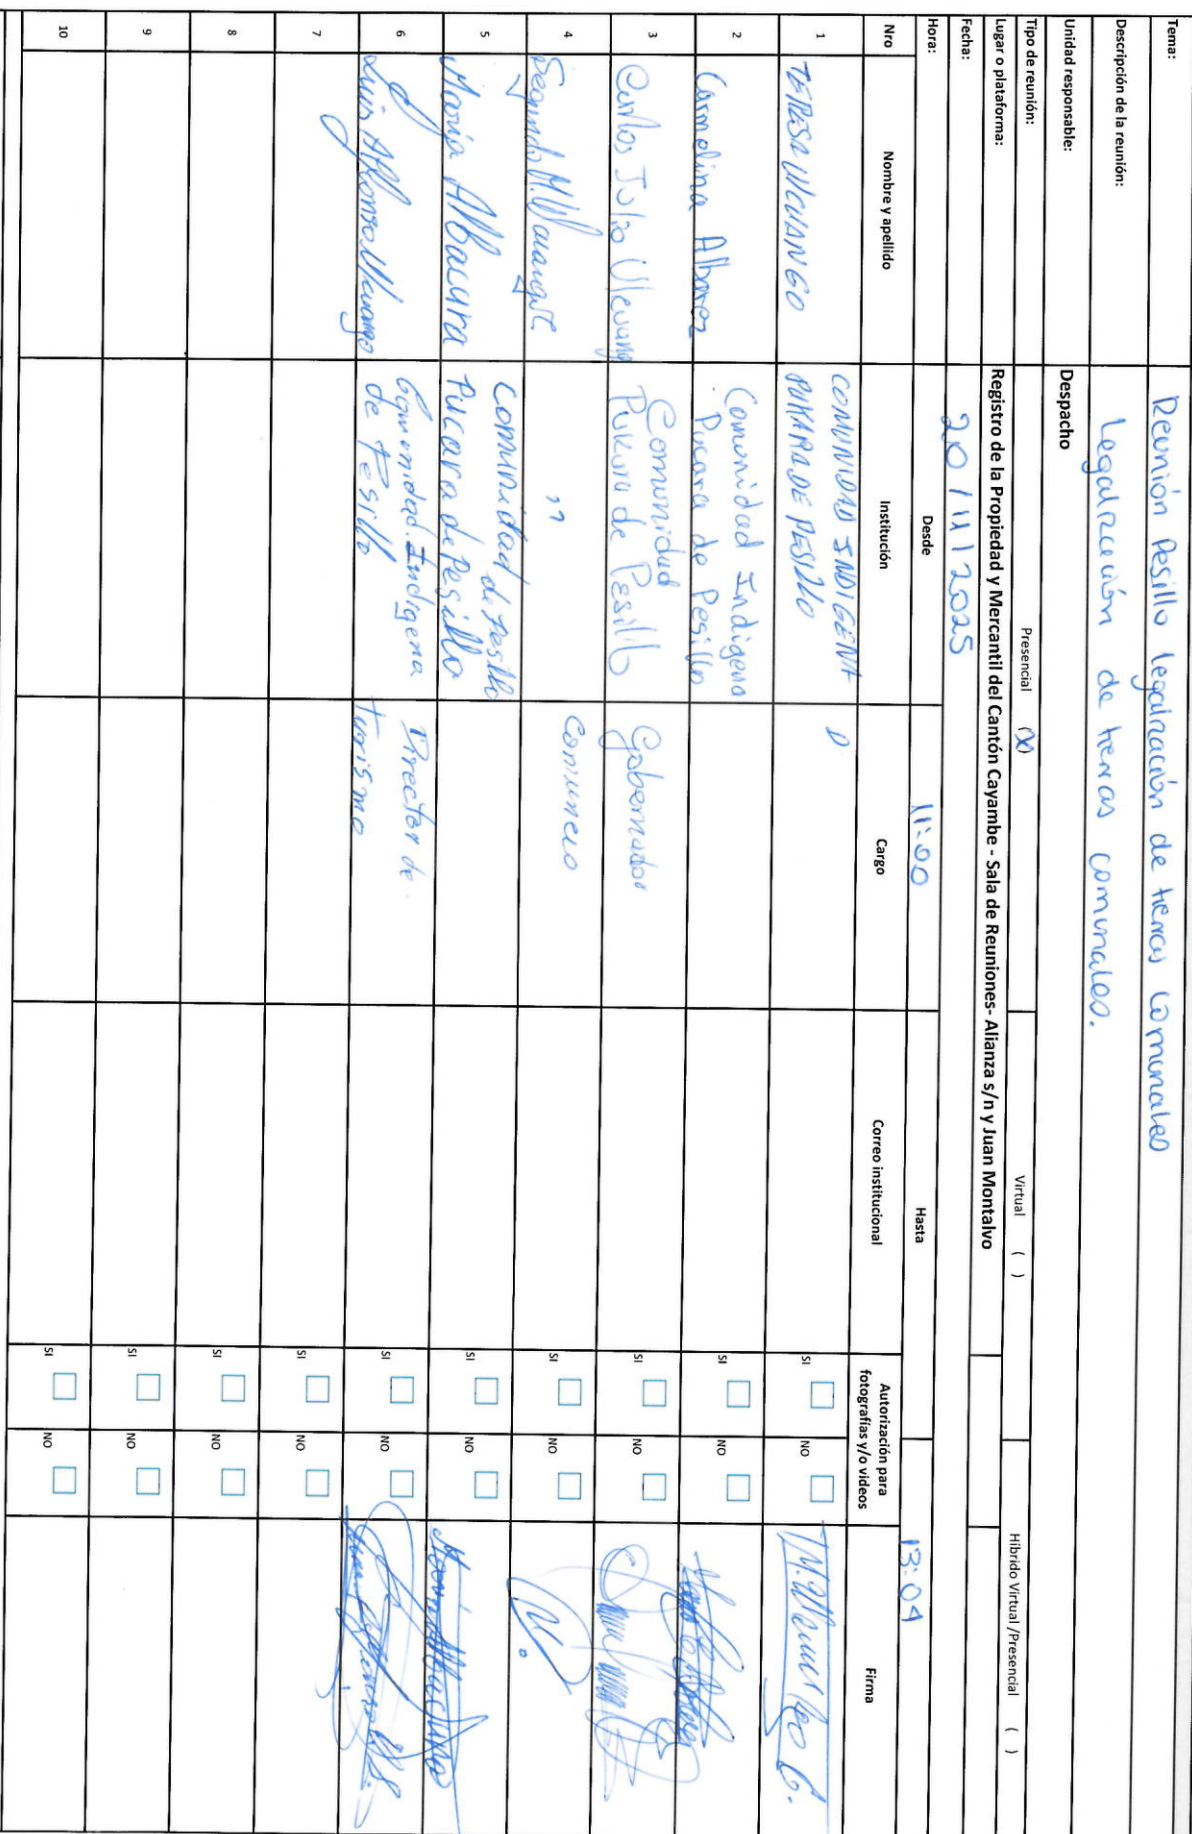 Tema: Reunión Pesillo legalización de tierras comunales
Descripción de la reunión: Legalización de tierras comunales.
Unidad responsable: Despacho
Tipo de reunión: Presencial (X) Virtual ( ) Híbrido Virtual /Presencial ( )
Lugar o plataforma: Registro de la Propiedad y Mercantil del Cantón Cayambe - Sala de Reuniones- Alianza s/n y Juan Montalvo
Fecha: 20 / 11 / 2025
Hora: Desde 11:00 Hasta 13:04
Nro Nombre y apellido Institución Cargo Correo institucional Autorización para fotografías y/o videos Firma
1 TERESA ULCUANGO COMUNIDAD INDIGENA PUKARA DE PESILLO D SI NO
2 Carmelina Albarez Comunidad Indigena Pucara de Pesillo SI NO
3 Carlos Julio Ulcuango Comunidad Pukara de Pesillo Gobernador SI NO
4 Segundo M. ,, Comunero SI NO
5 María Albacura Comunidad de Pesillo Pucara de Pesillo SI NO
6 Luis Alfonso Ulcuango Comunidad Indigena de Pesillo Director de Turismo SI NO
7 SI NO
8 SI NO
9 SI NO
10 SI NO